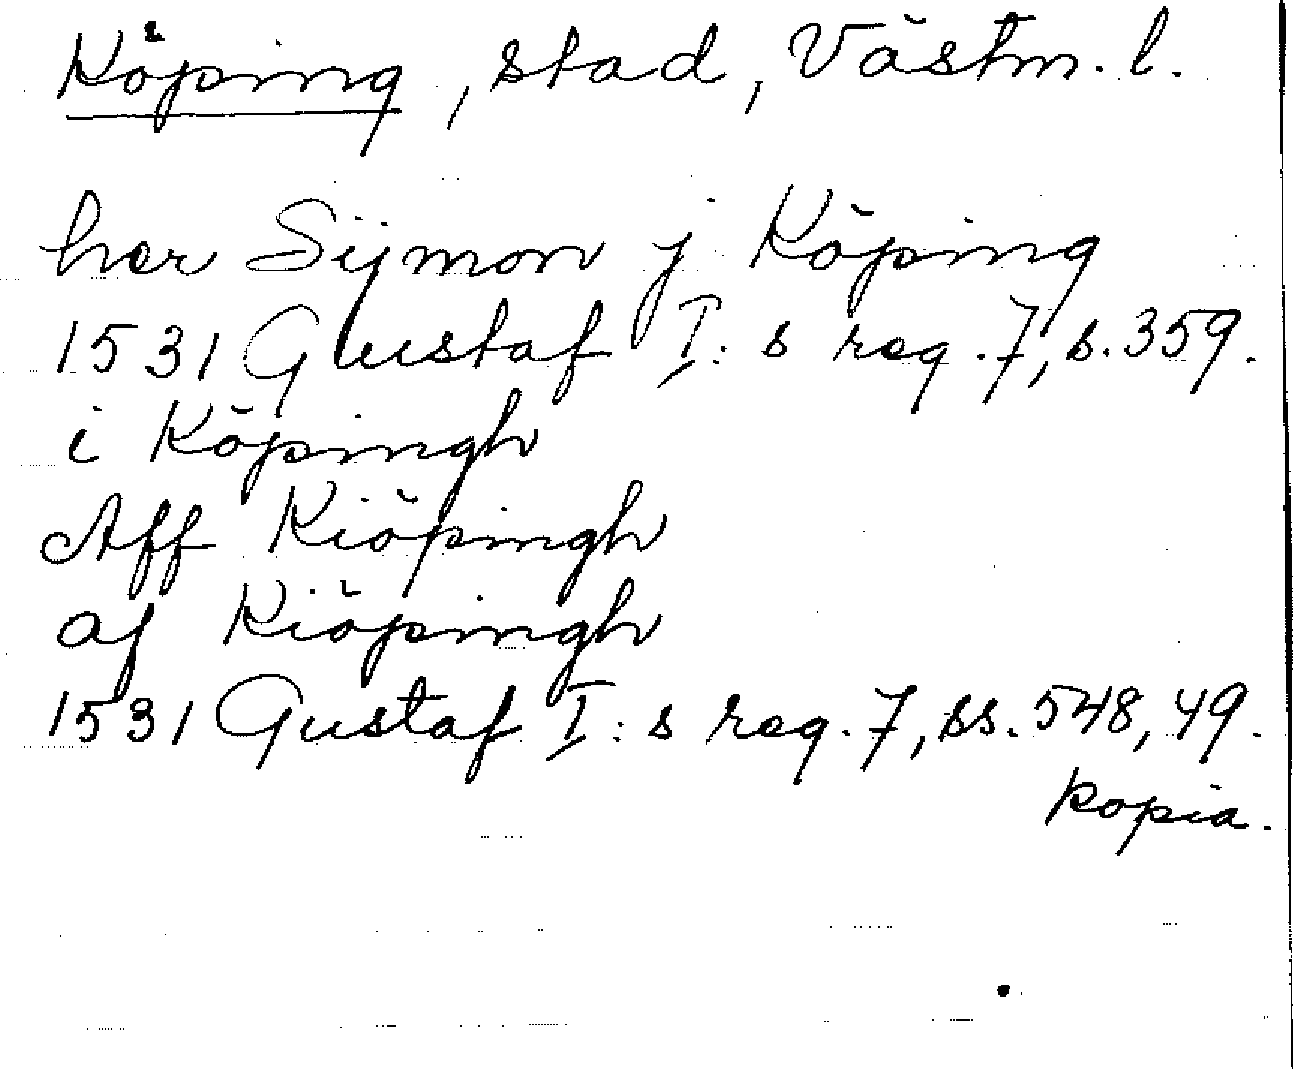 Köping, stad, Västm. l.
her Sijmon j Köping
1531 Gustaf I:s reg. 7, s. 359.
i Köpingh
Aff Kiöpingh
af Kiöpingh
1531 Gustaf I:s reg. 7, ss. 548, 49.
kopia.